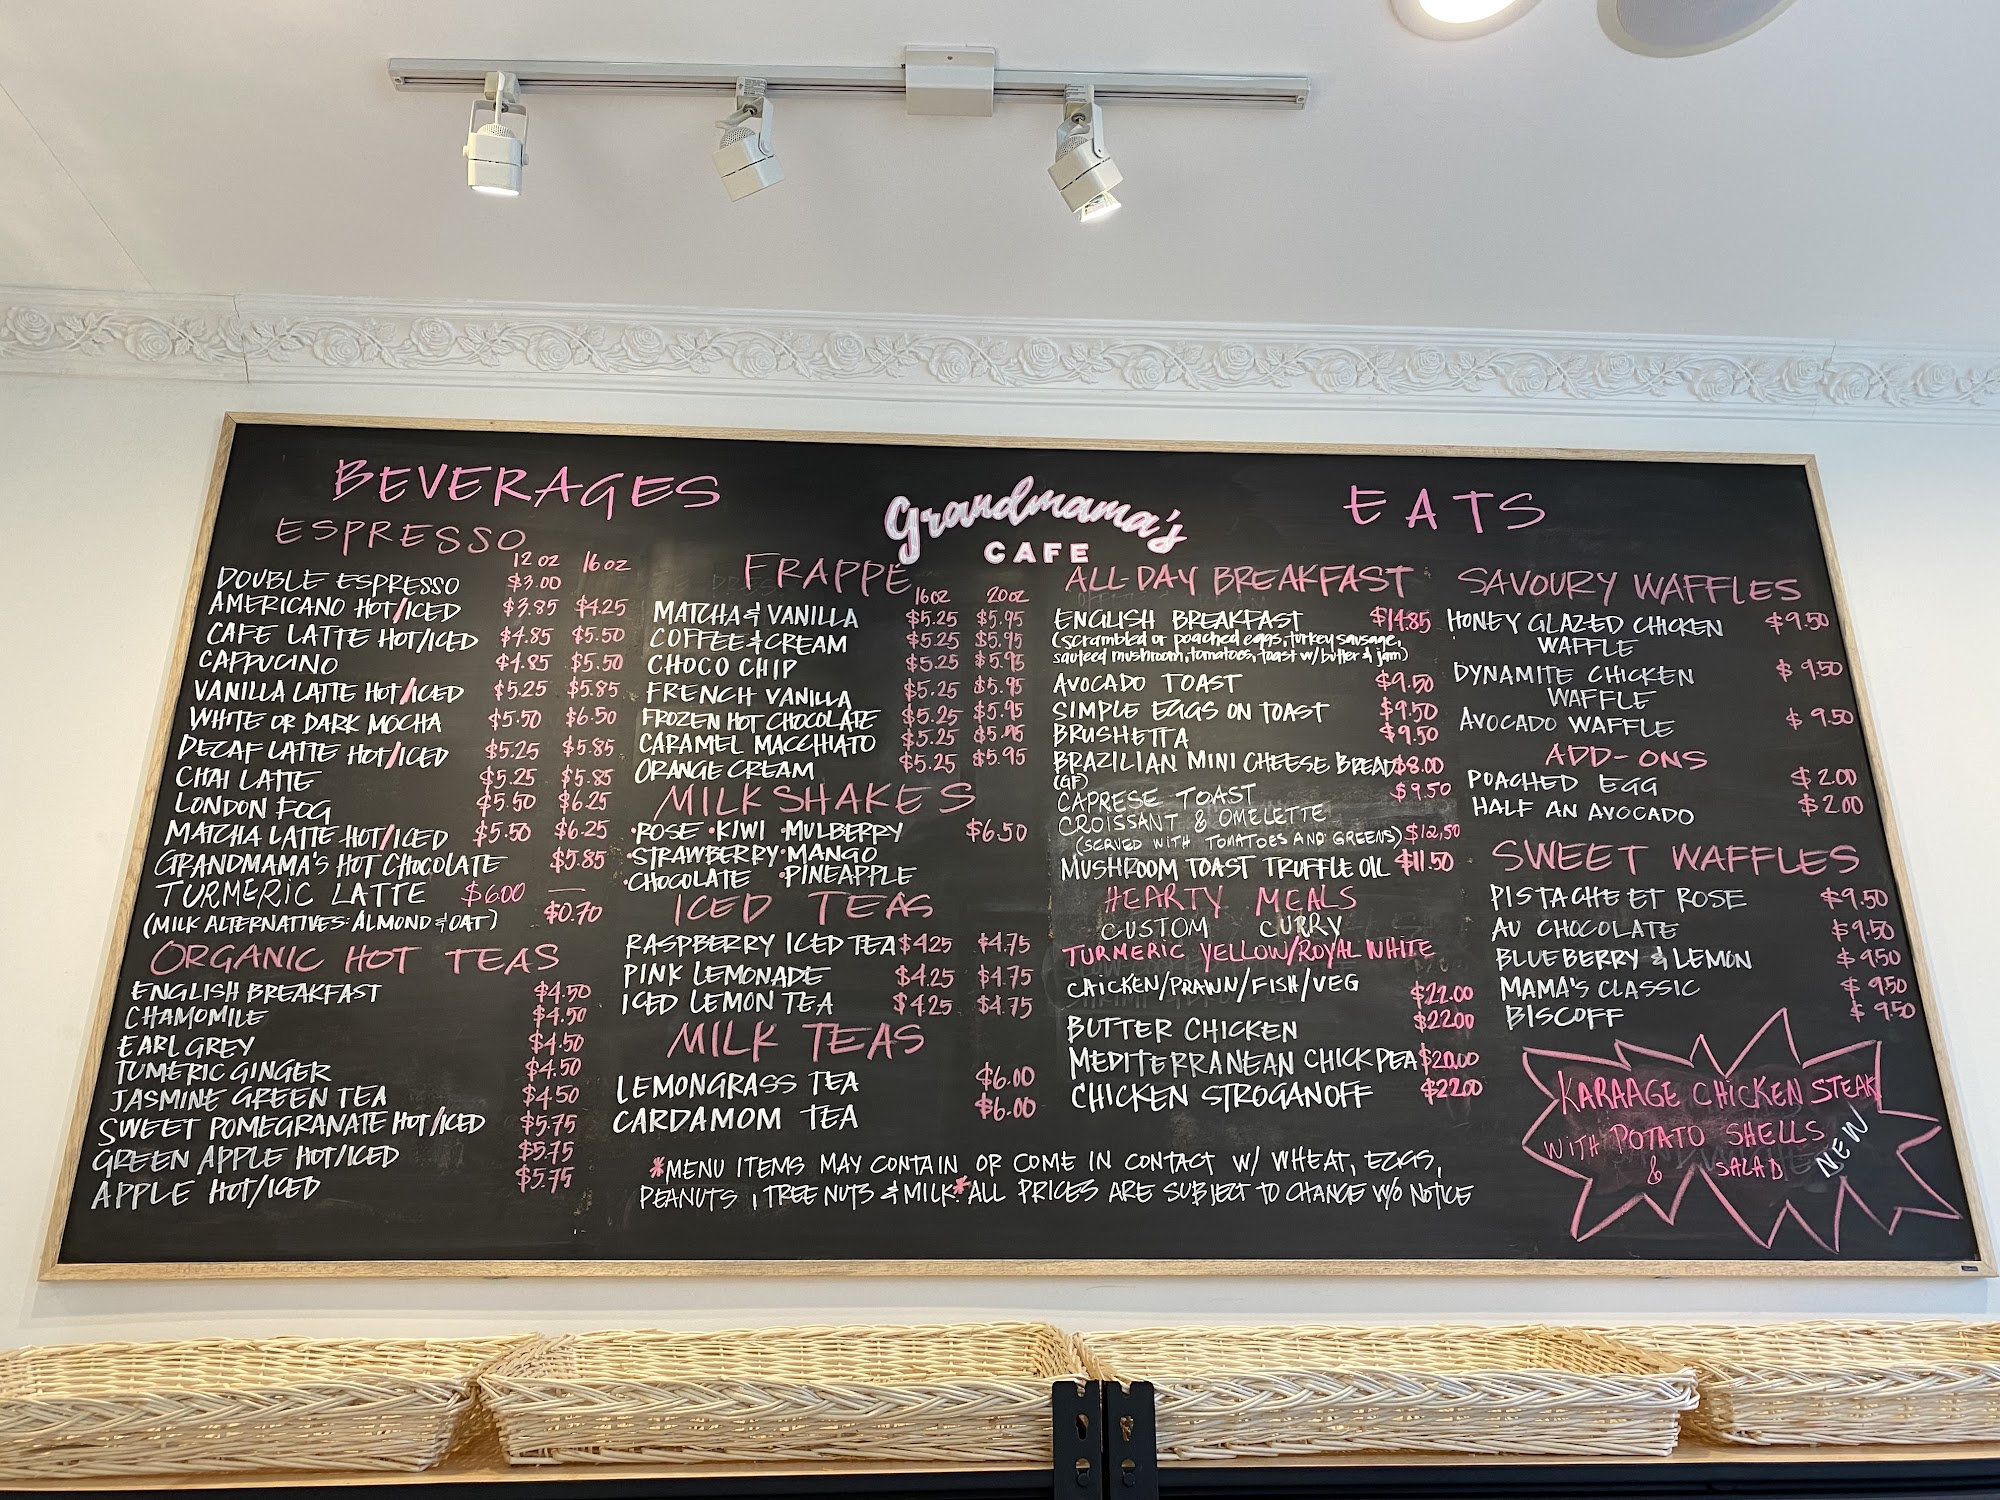 BEVERAGES
ESPRESSO
12 oz 16 oz
DOUBLE ESPRESSO $3.00
AMERICANO HOT/ICED $3.85 $4.25
CAFE LATTE HOT/ICED $4.85 $5.50
CAPPUCINO $4.85 $5.50
VANILLA LATTE HOT/ICED $5.25 $5.85
WHITE OR DARK MOCHA $5.50 $6.50
DECAF LATTE HOT/ICED $5.25 $5.85
CHAI LATTE $5.25 $5.85
LONDON FOG $5.50 $6.25
MATCHA LATTE HOT/ICED $5.50 $6.25
GRANDMAMA'S HOT CHOCOLATE $5.85
TURMERIC LATTE $6.00 —
(MILK ALTERNATIVES: ALMOND & OAT) $0.70
ORGANIC HOT TEAS
ENGLISH BREAKFAST $4.50
CHAMOMILE $4.50
EARL GREY $4.50
TUMERIC GINGER $4.50
JASMINE GREEN TEA $4.50
SWEET POMEGRANATE HOT/ICED $5.75
GREEN APPLE HOT/ICED $5.75
APPLE HOT/ICED $5.75
Grandmama's
CAFE
FRAPPE
16oz 20oz
MATCHA & VANILLA $5.25 $5.95
COFFEE & CREAM $5.25 $5.95
CHOCO CHIP $5.25 $5.95
FRENCH VANILLA $5.25 $5.95
FROZEN HOT CHOCOLATE $5.25 $5.95
CARAMEL MACCHIATO $5.25 $5.95
ORANGE CREAM $5.25 $5.95
MILKSHAKES
•ROSE •KIWI •MULBERRY $6.50
•STRAWBERRY •MANGO
•CHOCOLATE •PINEAPPLE
ICED TEAS
RASPBERRY ICED TEA $4.25 $4.75
PINK LEMONADE $4.25 $4.75
ICED LEMON TEA $4.25 $4.75
MILK TEAS
LEMONGRASS TEA $6.00
CARDAMOM TEA $6.00
EATS
ALL-DAY BREAKFAST
ENGLISH BREAKFAST $14.85
(scrambled or poached eggs, turkey sausage,
sauteed mushroom, tomatoes, toast w/ butter & jam)
AVOCADO TOAST $9.50
SIMPLE EGGS ON TOAST $9.50
BRUSHETTA $9.50
BRAZILIAN MINI CHEESE BREAD $8.00
(GF)
CAPRESE TOAST $9.50
CROISSANT & OMELETTE
(SERVED WITH TOMATOES AND GREENS) $12.50
MUSHROOM TOAST TRUFFLE OIL $11.50
HEARTY MEALS
CUSTOM CURRY
TURMERIC YELLOW/ROYAL WHITE
CHICKEN/PRAWN/FISH/VEG $22.00
BUTTER CHICKEN $22.00
MEDITERRANEAN CHICKPEA $20.00
CHICKEN STROGANOFF $22.00
SAVOURY WAFFLES
HONEY GLAZED CHICKEN $9.50
WAFFLE
DYNAMITE CHICKEN $9.50
WAFFLE
AVOCADO WAFFLE $9.50
ADD-ONS
POACHED EGG $2.00
HALF AN AVOCADO $2.00
SWEET WAFFLES
PISTACHE ET ROSE $9.50
AU CHOCOLATE $9.50
BLUEBERRY & LEMON $9.50
MAMA'S CLASSIC $9.50
BISCOFF $9.50
KARAAGE CHICKEN STEAK
WITH POTATO SHELLS
& SALAD
NEW
*MENU ITEMS MAY CONTAIN OR COME IN CONTACT W/ WHEAT, EGGS,
PEANUTS, TREE NUTS & MILK.*ALL PRICES ARE SUBJECT TO CHANGE W/O NOTICE